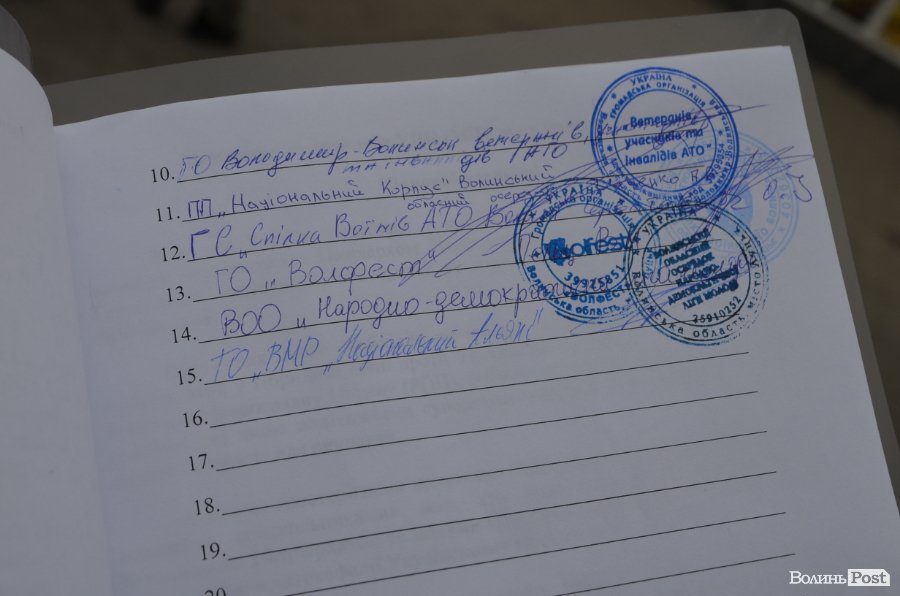 10. ГО Володимир-Волинськ ветеранів,
та інвалідів АТО
11. ПП „Національний Корпус" Волинський
обласний осередок
12. ГС „Спілка Воїнів АТО
13. ГО „Волфест"
14. ВОО „Народно-демократична
15. ГО „ВМР „Національний Альянс"
16.
17.
18.
19.
20.
УКРАЇНА
ГРОМАДСЬКА ОРГАНІЗАЦІЯ
"Ветеранів
учасників та
інвалідів АТО"
УКРАЇНА
Громадська організація
39925851
"ВОЛФЕСТ"
Волинська область, м.
УКРАЇНА
ВОЛИНСЬКИЙ
ОБЛАСНИЙ
ОСЕРЕДОК
НАРОДНО-
ДЕМОКРАТИЧНОЇ
ЛІГИ МОЛОДІ
25910252
Волинська область, місто Луцьк
Волинь Post